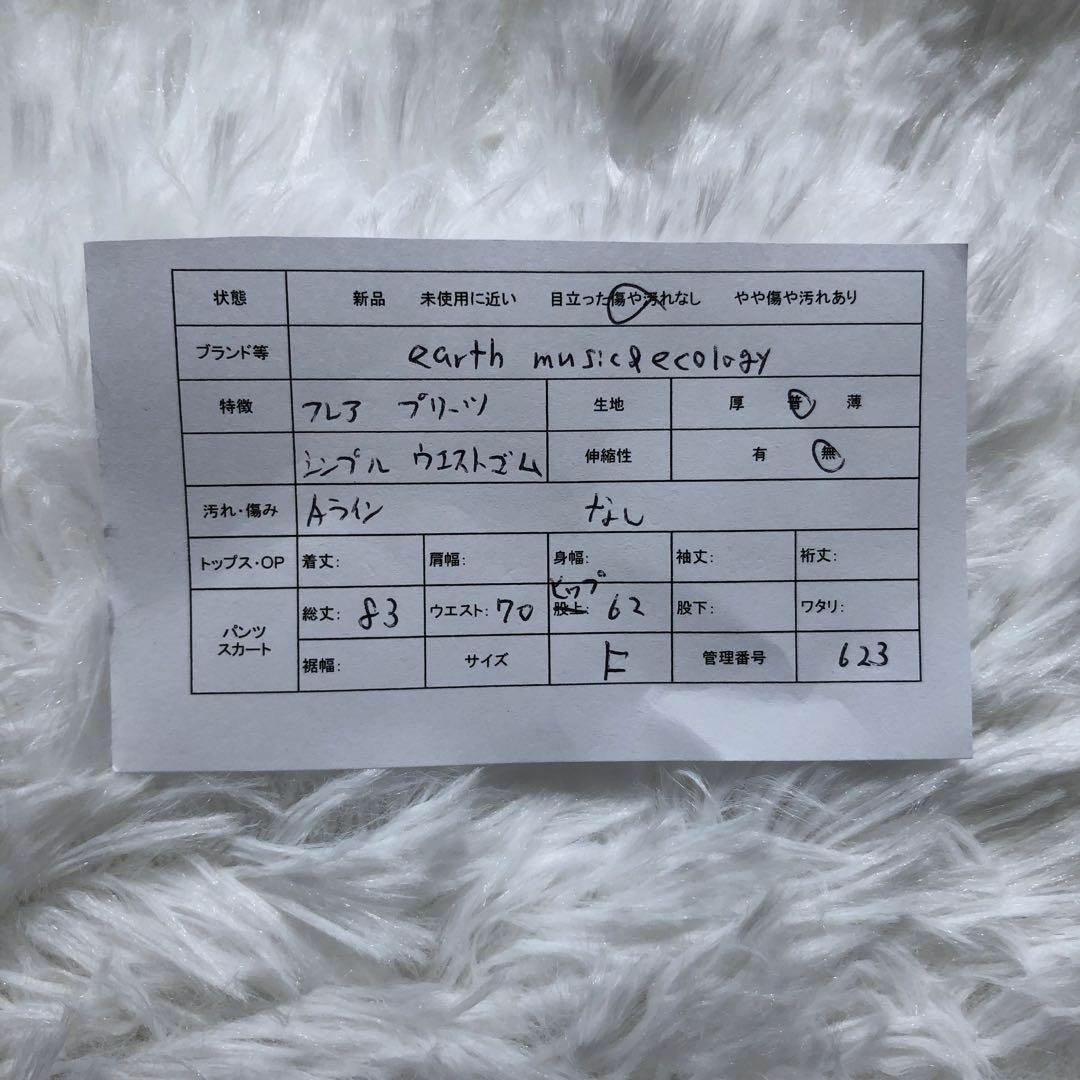 状態 新品 未使用に近い 目立った傷や汚れなし やや傷や汚れあり
ブランド等 earth music&ecology
特徴 フレア プリーツ 生地 厚 普 薄
シンプル ウエストゴム 伸縮性 有 無
汚れ・傷み Aライン なし
トップス・OP 着丈: 肩幅: 身幅: 袖丈: 裄丈:
ヒップ
パンツ スカート 総丈: 83 ウエスト: 70 股上: 62 股下: ワタリ:
裾幅: サイズ F 管理番号 623